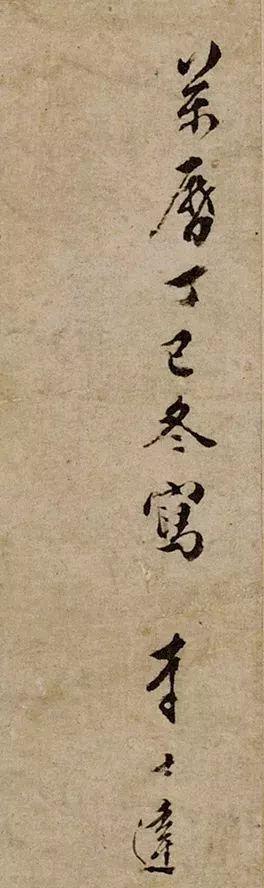 萬曆丁巳冬寫 李士達